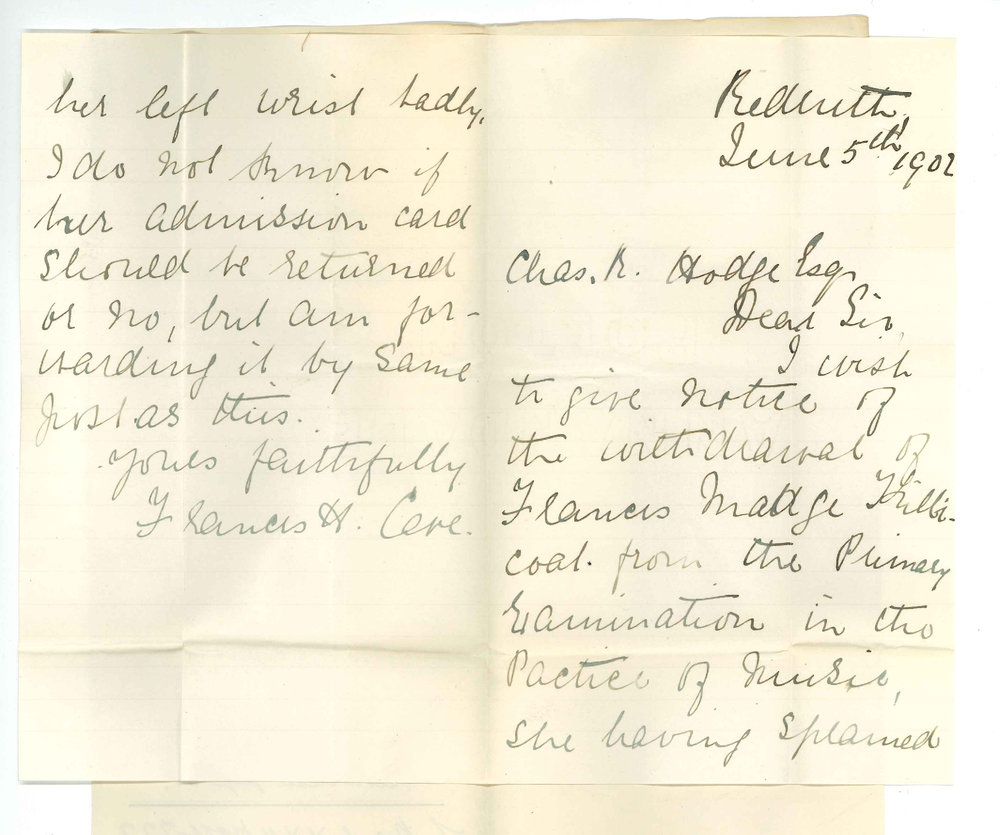 Redruth,
June 5th, 1902
Chas. R. Hodge Esqr,
Dear Sir,
I wish
to give notice of
the withdrawal of
Frances Madge Trilli-
coat. from the Primary
Examination in the
Pactice of Music,
she having sprained
her left wrist badly.
I do not know if
her admission card
should be returned
or no, but am for-
warding it by same
post as this.
Yours faithfully
Frances H. Cave.